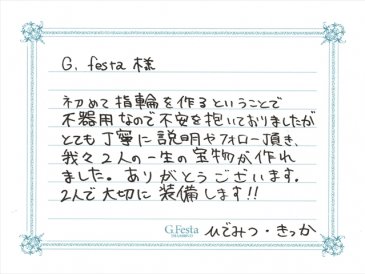 G. festa 様
初めて指輪を作るということで
不器用なので不安を抱いておりましたが
とても丁寧に説明やフォロー頂き、
我々2人の一生の宝物が作れ
ました。ありがとうございます。
2人で大切に装備します!!
G.Festa
ひでみつ・きっか